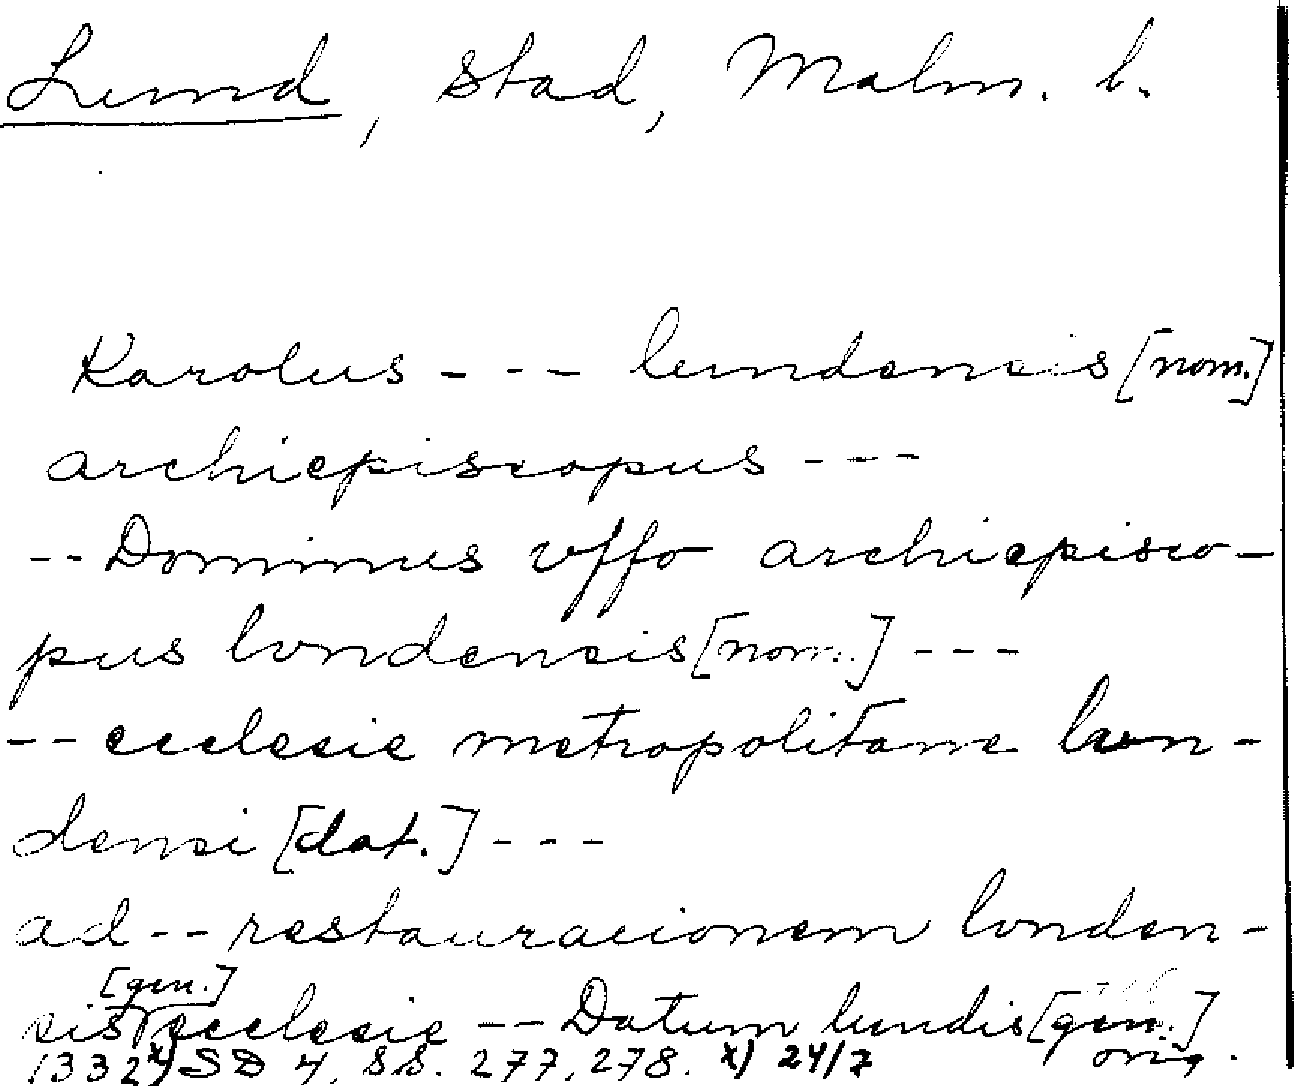 Lund, stad, Malm. l.
Karolus - - - lundensis [nom.]
archiepiscopus - - -
- - Dominus vffo archiepisco-
pus lvndensis [nom.] - - -
- - ecclesie metropolitane lun-
densi [dat.] - - -
ad - - restauracionem lvnden-
[gen.]
sis ecclesie - - Datum lundis [gen.]
1332 x) SD 4, ss. 277, 278. x) 24/7 orig.